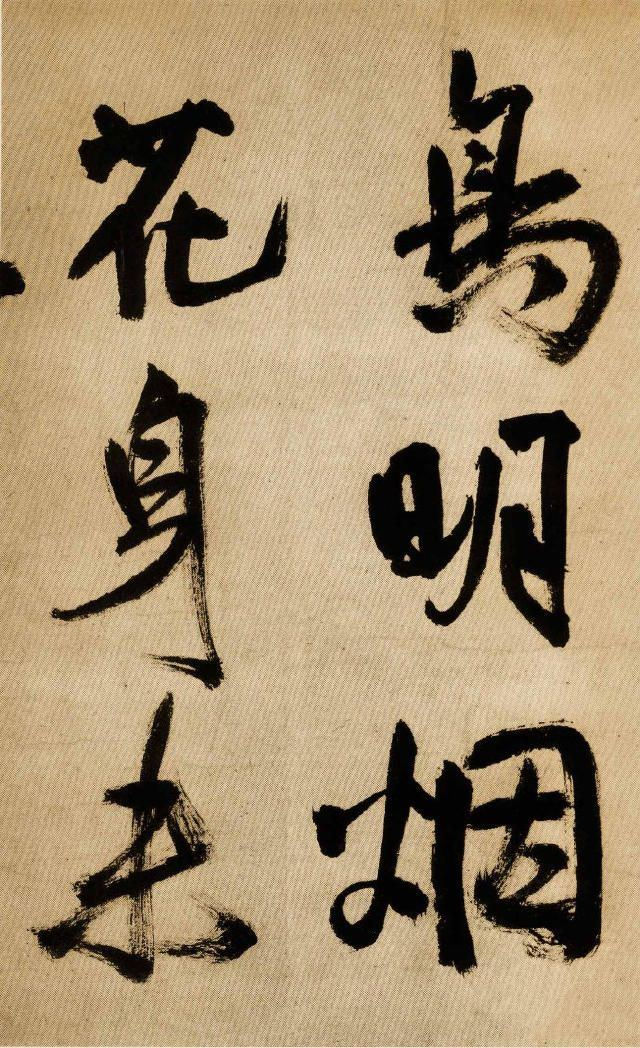 鳥明烟
花身未